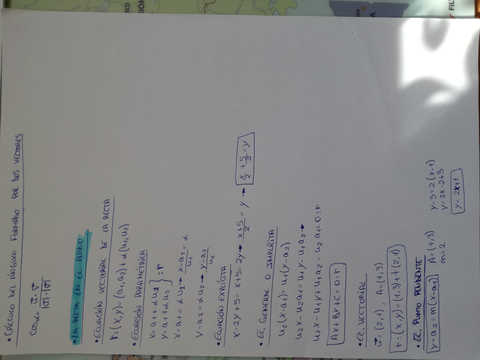 • CÁLCULO DEL ÁNGULO FORMADO POR DOS VECTORES
cos α = u⃗ · v⃗ / |u⃗| · |v⃗|
• LA RECTA EN EL PLANO
• ECUACIÓN VECTORIAL DE LA RECTA
r: (x, y) = (a₁, a₂) + α (u₁, u₂)
• ECUACIÓN PARAMÉTRICA
x = a₁ + α u₁
y = a₂ + α u₂ } = r
x - a₁ = α u₁ → x - a₁ / u₁ = α
y - a₂ = α u₂ → y - a₂ / u₂
• ECUACIÓN EXPLÍCITA
x - 2y + 5 = x + 5 = 2y → x + 5 / 2 = y → x/2 + 5/2 = y
• EC. GENERAL O IMPLÍCITA
u₂ (x - a₁) = u₁ (y - a₂)
u₂ x - u₂ a₁ = u₁ y - u₁ a₂ →
u₂ x - u₁ y + u₁ a₂ - u₂ a₁ = 0 = r
Ax + By + C = 0 = r
• EC. VECTORIAL
u⃗ = (2, 1), A = (1, 3)
r: (x, y) = (1, 3) + t (2, 1)
• EC. PUNTO PENDIENTE
y - a₂ = m (x - a₁)
A = (1, 3)
m = 2
y - 3 = 2 (x - 1)
y = 2x - 2 + 3
y = 2x + 1